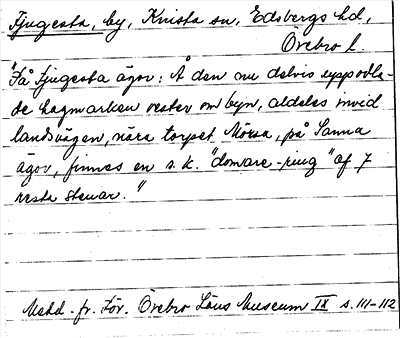 Tjugesta, by, Knista sn, Edsbergs hd,
Örebro l.
"På Tjugesta ägor: Å den nu delvis uppodla-
de hagmarken vester om byn, aldeles invid
landsvägen, nära torpet Mossa, på Sanna
ägor, finnes en s.k. "domare-ring" af 7
resta stenar."
Medd. fr. För. Örebro Läns Museum IX s. 111-112